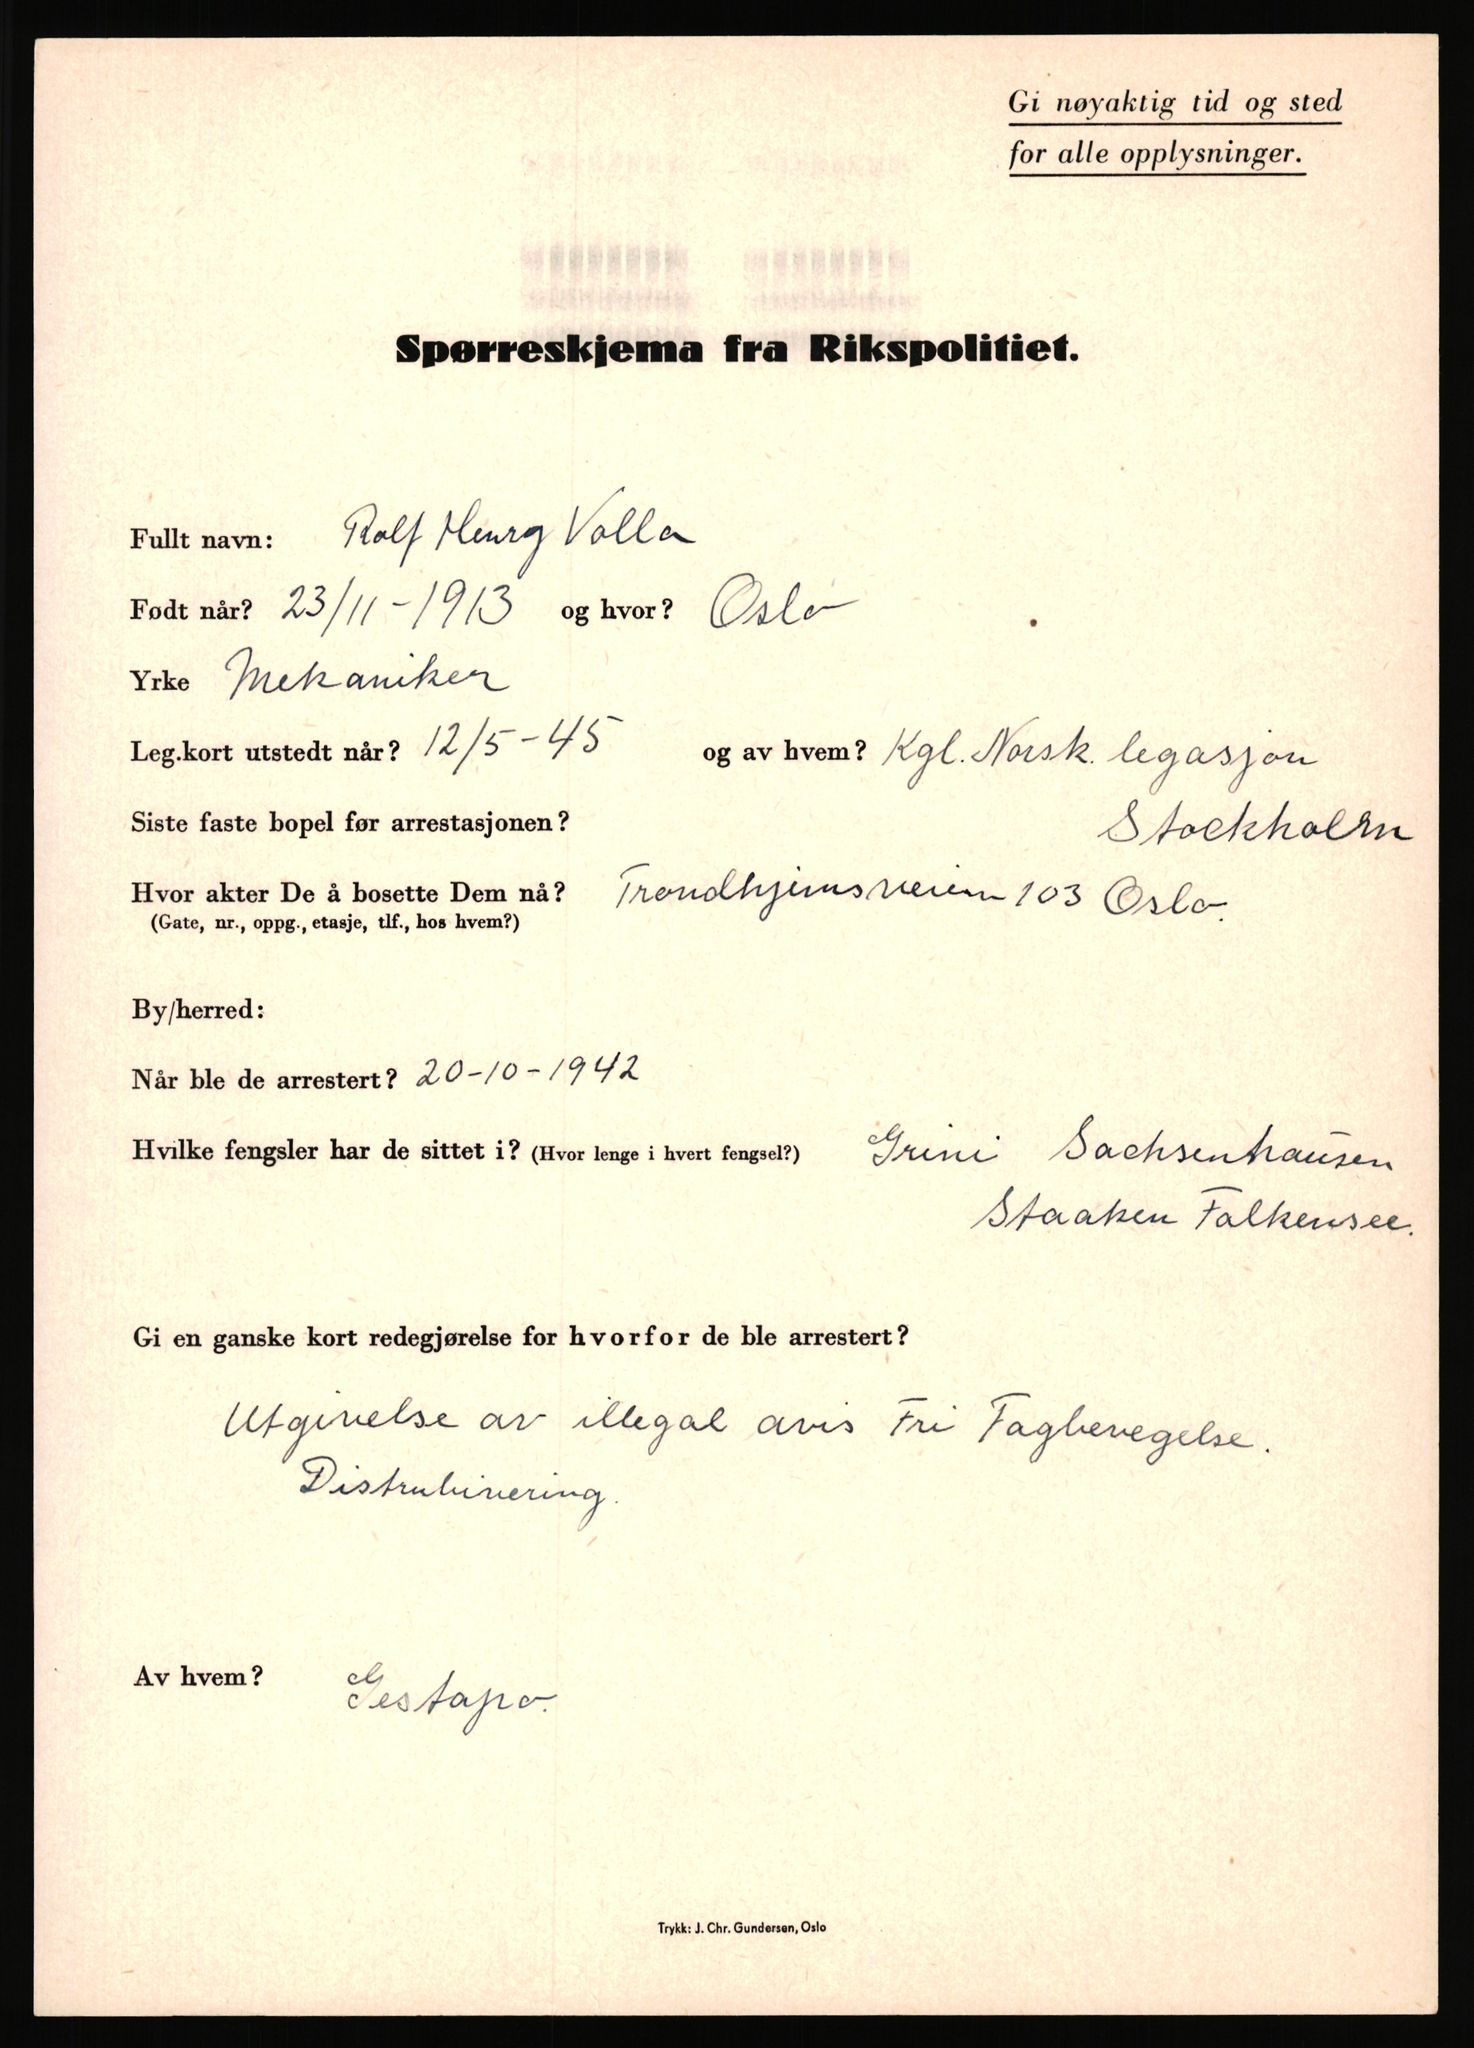 Gi nøyaktig tid og sted
for alle opplysninger.
Spørreskjema fra Rikspolitiet.
Fullt navn: Rolf Henry Volla
Født når? 23/11-1913 og hvor? Oslo
Yrke Mekaniker
Leg.kort utstedt når? 12/5-45 og av hvem? Kgl. Norsk. legasjon
Siste faste bopel før arrestasjonen? Stockholm
Hvor akter De å bosette Dem nå? Trondhjemsveien 103 Oslo.
(Gate, nr., oppg., etasje, tlf., hos hvem?)
By/herred:
Når ble de arrestert? 20-10-1942
Hvilke fengsler har de sittet i? (Hvor lenge i hvert fengsel?) Grini Sachsenhausen
Staaken Falkensee.
Gi en ganske kort redegjørelse for hvorfor de ble arrestert?
Utgivelse av illegal avis Fri Fagbevegelse.
Distrubinering.
Av hvem? Gestapo.
Trykk: J. Chr. Gundersen, Oslo